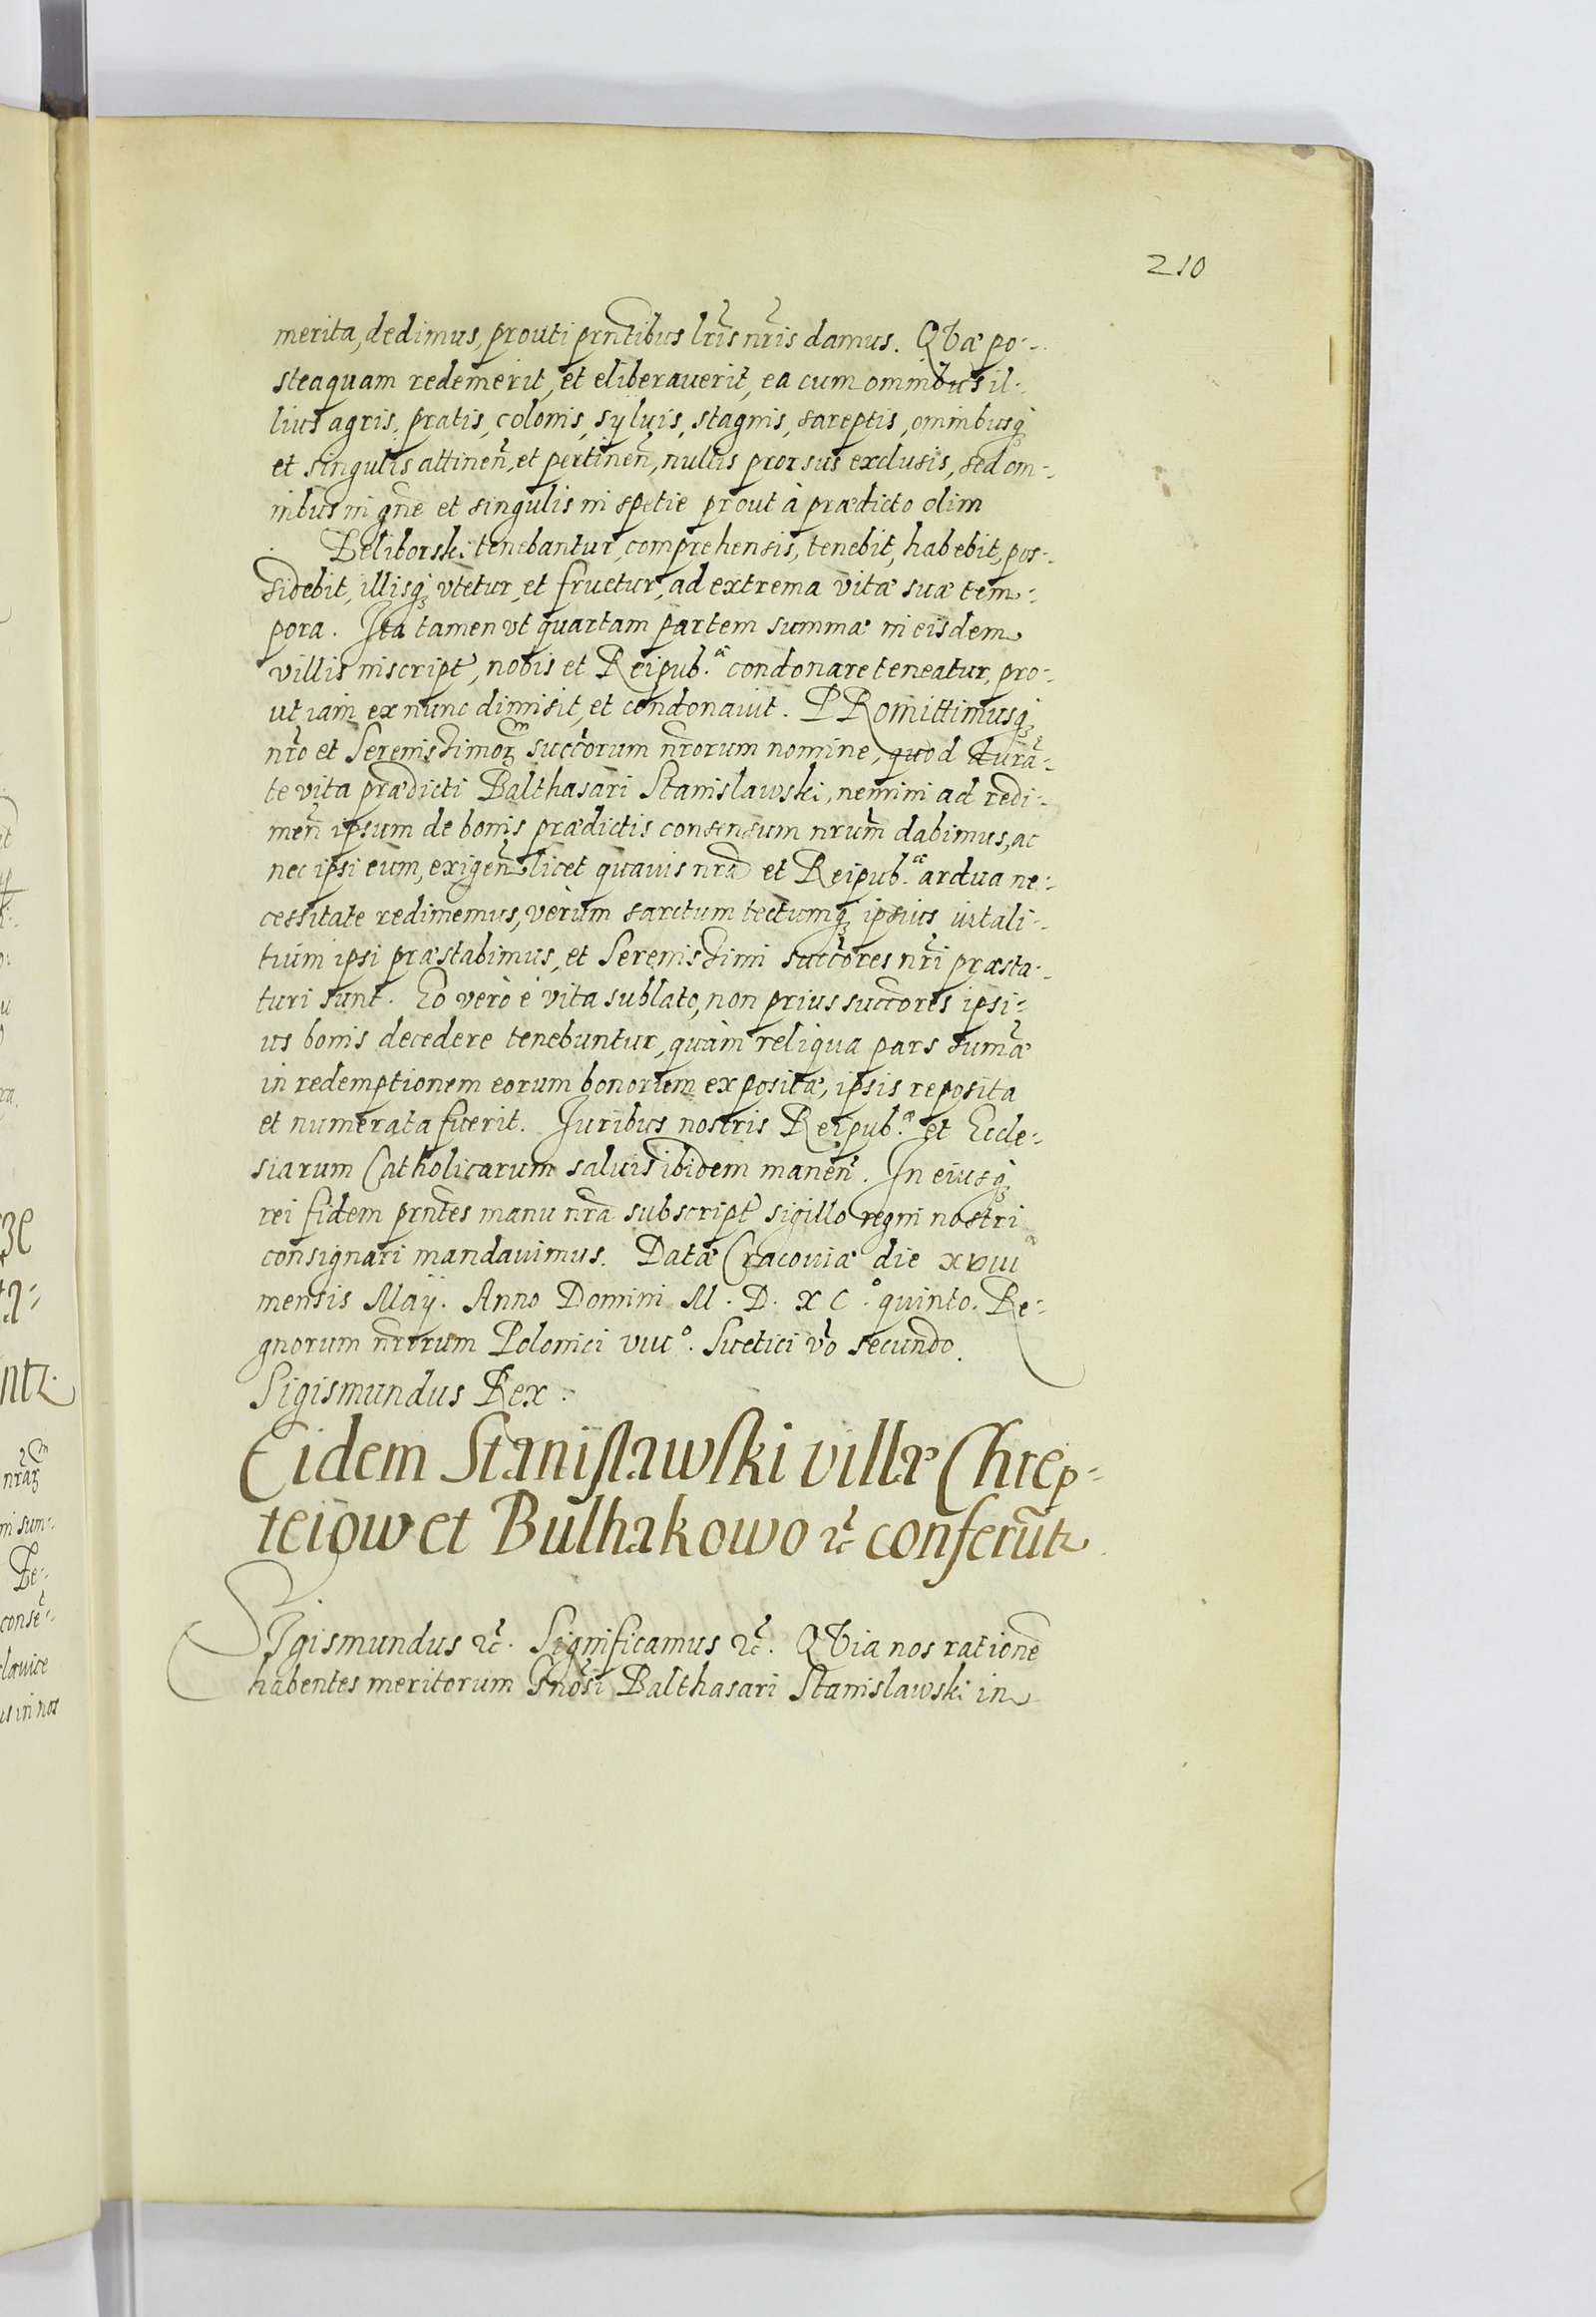 210
merita, dedimus, prouti prñtibus lr̃is nr̃is damus. QVæ po-
steaquam redemerit, et eliberauerit, ea cum omnibus il-
lius agris, pratis, colonis, syluis, stagnis, sareptis, omnibusq́ꝫ
et singulis attineñ, et pertineñ, nullis prorsus exclusis, sed om-
nibus in gñe et singulis in spetie prout à prædicto olim
Beliborski tenebantur, comprehensis, tenebit, habebit, pos-
sidebit, illisq́ꝫ vtetur, et fruetur, ad extrema vitæ suæ tem-
pora. Ita tamen vt quartam partem summæ in eisdem
villis inscript, nobis et Reipub.æ condonare teneatur, pro-
ut iam ex nunc dimisit, et condonauit. PRomittimusq́ꝫ
nr̃o et Serenissimorꝫ succ̃orum nr̃orum nomine, quod durã-
te vita prædicti Balthasari Stanislawski, nemini ad redi-
meñ ipsum de bonis prædictis consensum nr̃um dabimus, ac
nec ipsi eum, exigeñ licet quauis nr̃a et Reipub.æ ardua ne-
cessitate redimemus, verùm sarctum tectumq́ꝫ ipsius vitali-
tium ipsi præstabimus, et Serenissimi succ̃ores nr̃i præsta-
turi sunt. Eo verò è vita sublato, non prius succ̃ores ipsi-
us bonis decedere tenebuntur, quàm reliqua pars sum̃æ
in redemptionem eorum bonorum expositæ, ipsis reposita
et numerata fuerit. Juribus nostris Reipub.æ et Eccle-
siarum Catholicarum saluis ibidem maneñ. In eiusq́ꝫ
rei fidem prñtes manu nr̃a subscript sigillo regni nostri
consignari mandauimus. Datæ Cracouiæ die xviii
mensis Maÿ. Anno Domini M. D. XC.º quinto. Re-
gnorum nr̃orum Polonici viiiº. Suetici vo secundo.
Sigismundus Rex.
Eidem Stanislawski villæ Chrep-
teiow et Bulhakowo ꝛc̃ conferũtꝛ
SIgismundus ꝛc̃. Significamus ꝛc̃. QVia nos rationẽ
habentes meritorum Gnõsi Balthasari Stanislawski in